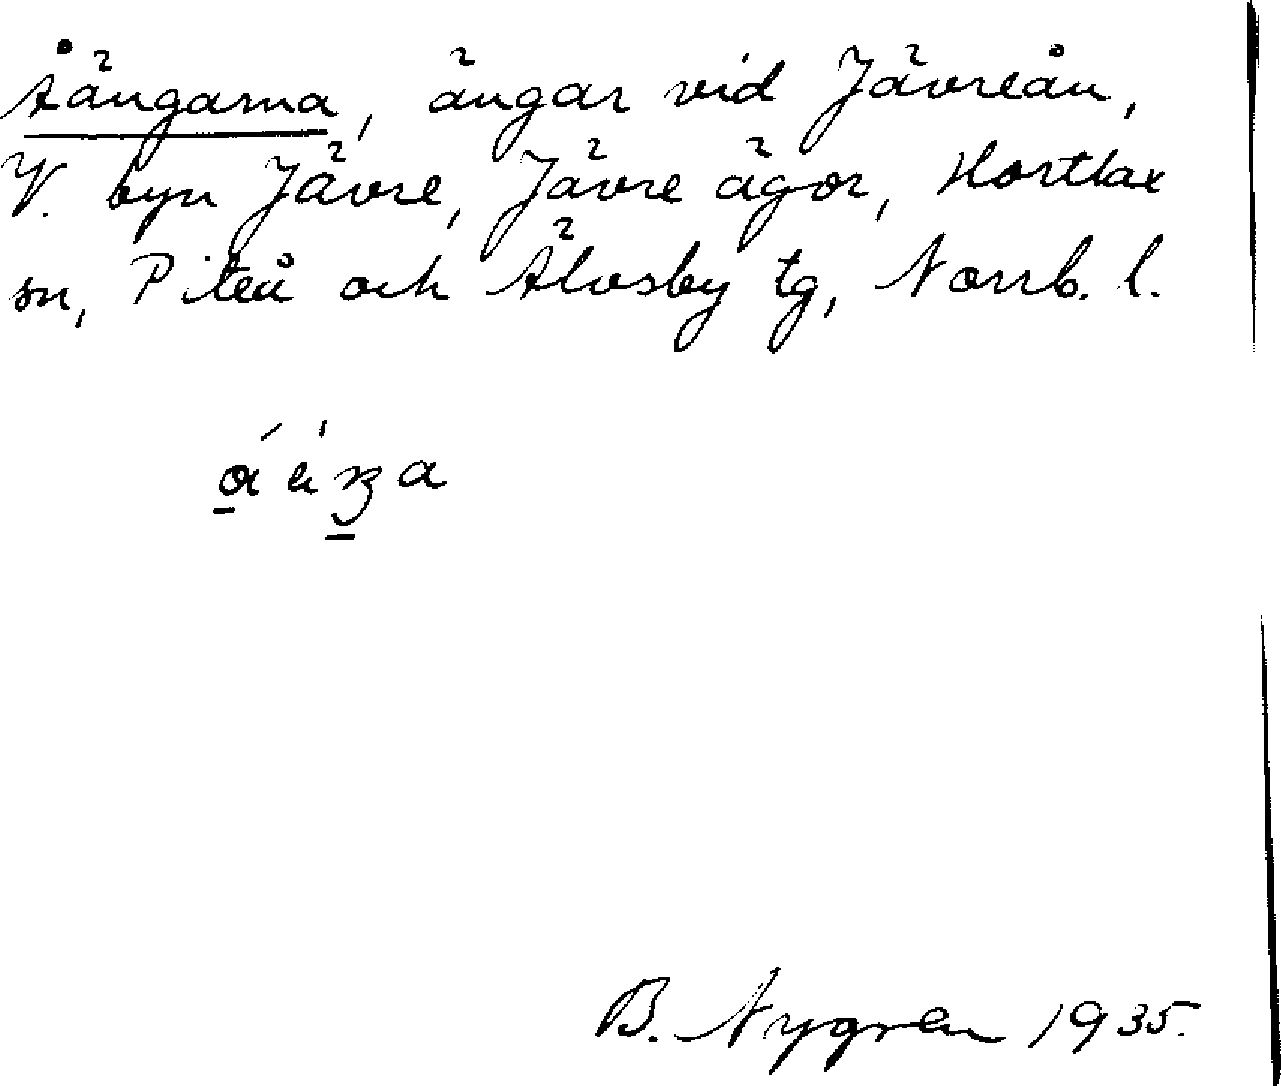 Åängarna, ängar vid Jävreån,
V. byn Jävre, Jävre ägor, Hortlax
sn, Piteå och Älvsby tg, Norrb. l.
B. Nygren 1935.